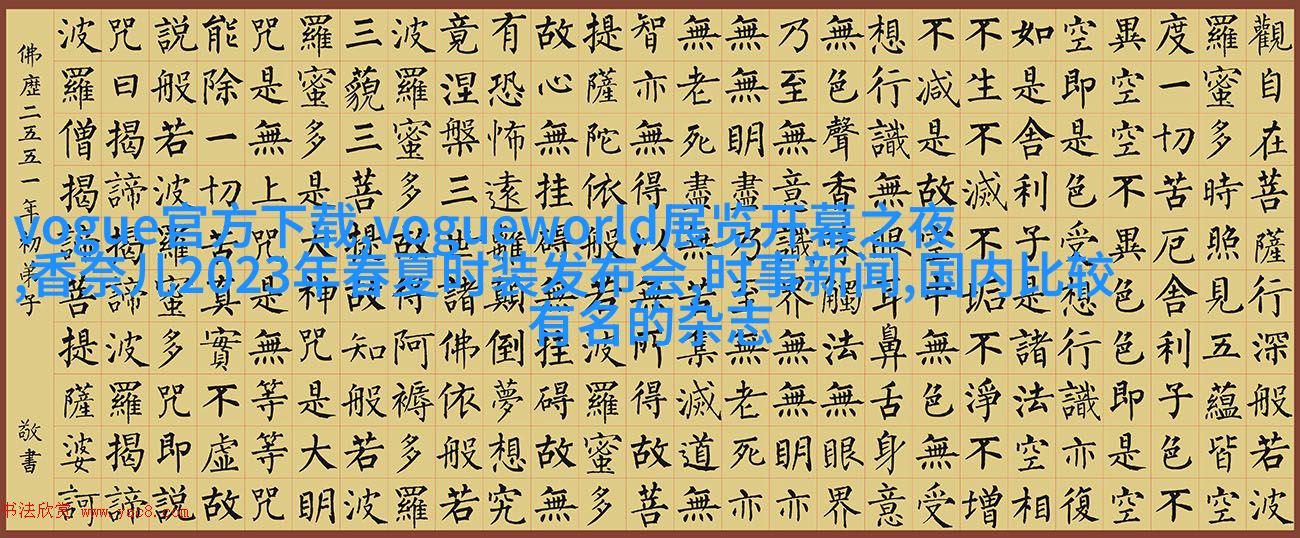 觀自在菩薩行深般若波
羅蜜多時照見五蘊皆空
度一切苦厄舍利子色不
異空空不異色色即是空
空即是色受想行識亦復
如是舍利子是諸法空相
不生不滅不垢不淨不增
不減是故空中無色無受
想行識無眼耳鼻舌身意
無色聲香味觸法無眼界
乃至無意識界無無明亦
無無明盡乃至無老死亦
無老死盡無苦集滅道無
智亦無得以無所得故菩
提薩陀依般若波羅蜜多
故心無挂礙無挂礙故無
有恐怖遠離顛倒夢想究
竟涅槃三世諸佛依般若
波羅蜜多故得阿褥多羅
三藐三菩提故知般若波
羅蜜多是大神咒是大明
咒是無上咒是無等等咒
能除一切苦真實不虛故
説般若波羅蜜多咒即説
咒曰揭諦揭諦波羅揭諦
波羅僧揭諦菩提薩婆訶
佛歷二五五一年 初弟子 敬書
vogue官方下载,vogueworld展览开幕之夜
,香奈儿2023年春夏时装发布会,时事新闻,国内比较
有名的杂志
书法欣赏 www.yac8.com